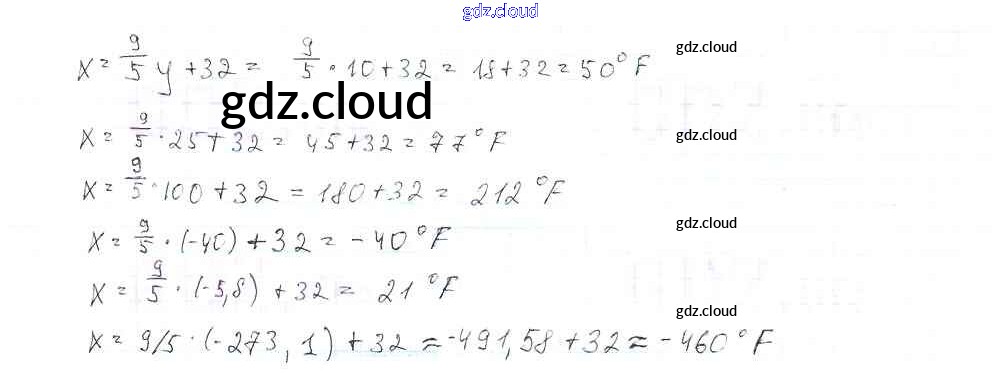 gdz.cloud
x = 9/5 y + 32 = 9/5 · 10 + 32 = 18 + 32 = 50°F
gdz.cloud
gdz.cloud
x = 9/5 · 25 + 32 = 45 + 32 = 77°F
gdz.cloud
x = 9/5 · 100 + 32 = 180 + 32 = 212°F
gdz.cloud
x = 9/5 · (-40) + 32 = -40°F
x = 9/5 · (-5,8) + 32 = 21°F
gdz.cloud
x = 9/5 · (-273,1) + 32 ≈ -491,58 + 32 ≈ -460°F